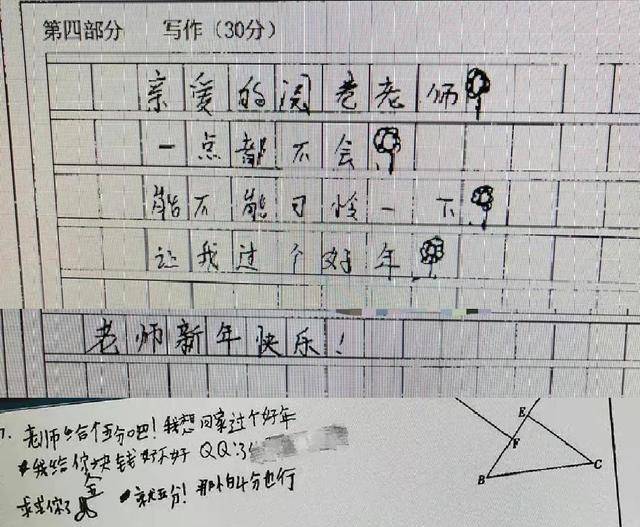 第四部分 写作（30分）
亲爱的阅卷老师
一点都不会
能不能可怜一下
让我过个好年
老师新年快乐！
7. 老师给个五分吧！我想回家过个好年
我给你块钱好不好 QQ:31
求求你了 就五分！那怕4分也行
E
F
B
C